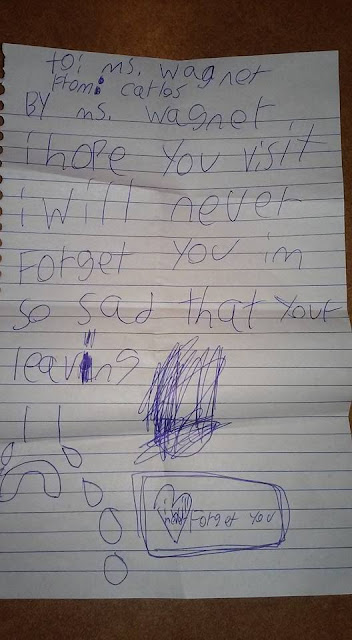 to: ms. wagner
From: carlos
BY ms. wagner
i hope you visit
i will never
Forget you im
so sad that your
leaving
i
never Forget you